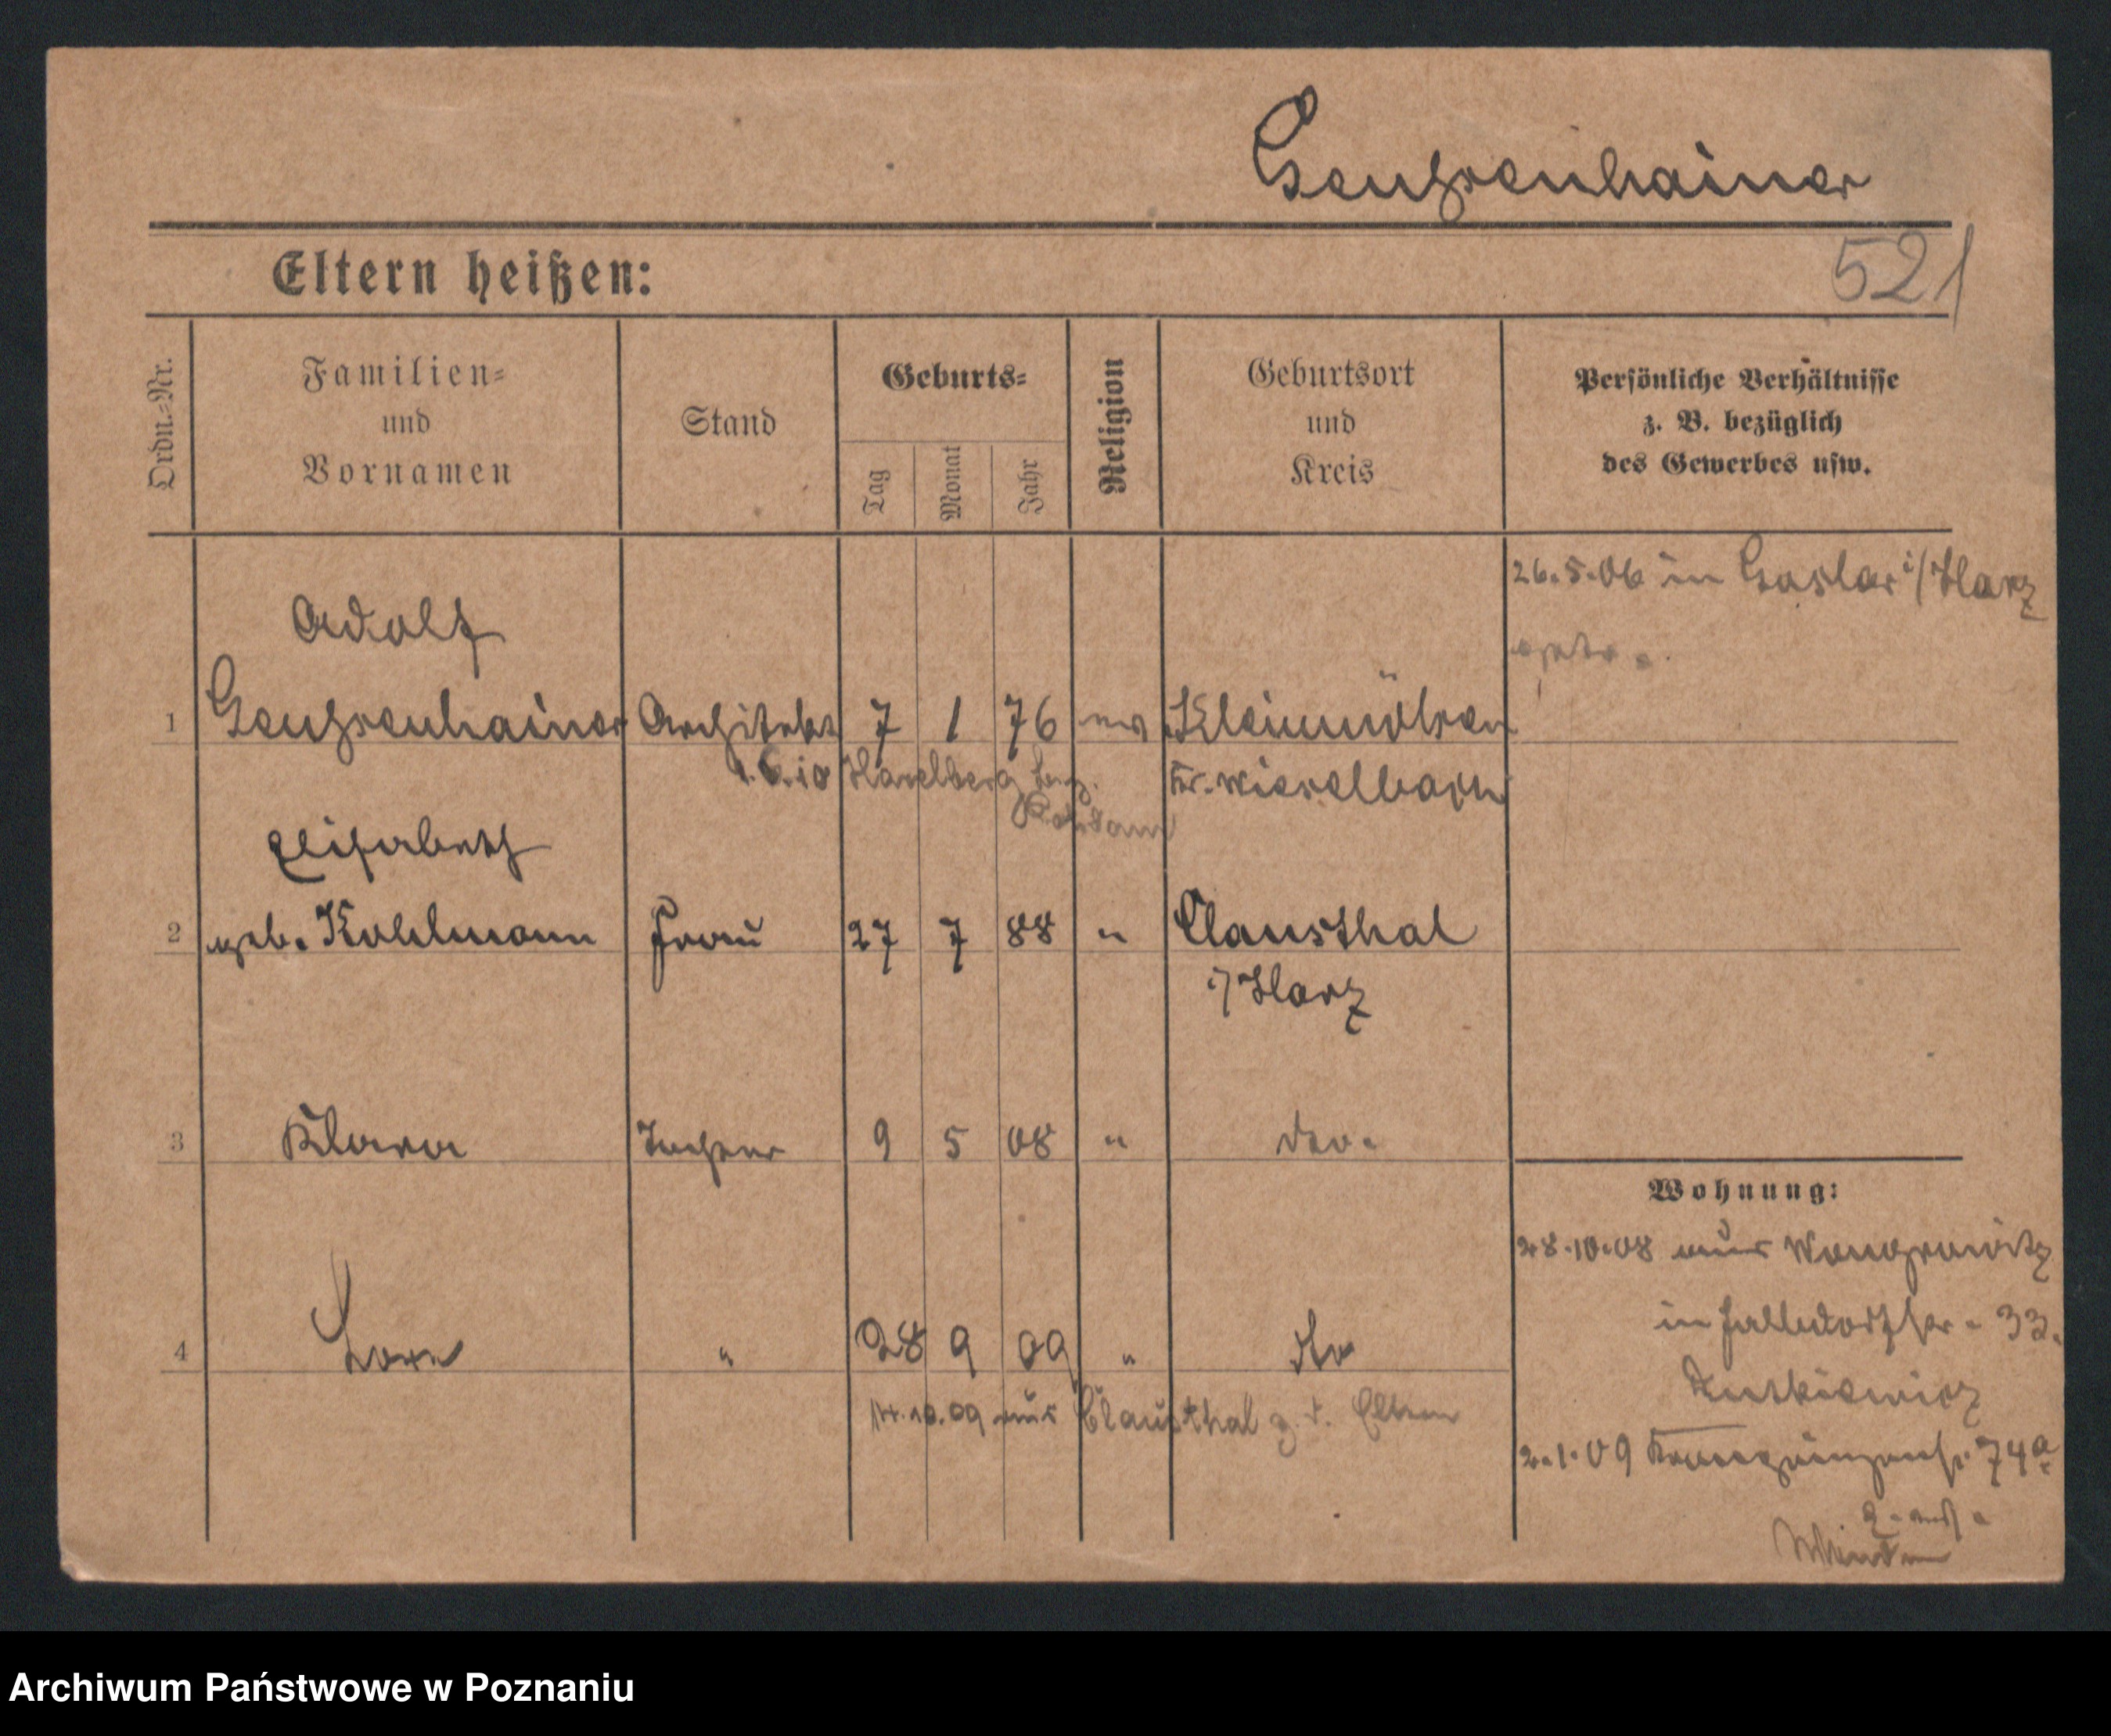 Geuhsenhainer
521
Eltern heißen:
Ordn.-Nr.
Familien-
und
Vornamen
Stand
Geburts-
Tag
Monat
Jahr
Religion
Geburtsort
und
Kreis
Persönliche Verhältnisse
z. B. bezüglich
des Gewerbes usw.
26.5.06 in Goslar i/Harz
Adolf
1 Architekt 7 1 76 ev
1.6.10 Havelberg bez.
Potsdam
Kr.
Elisabeth
2 geb. Kohlmann Frau 27 7 88 " Clausthal
i/Harz
3 Klara Tochter 9 5 08 " dto.
Wohnung:
28.10.08 aus Wongrowitz
in 33.
4 " 28 9 09 " dto
14.10.09 aus Clausthal z. d. Eltern
2.1.09 74a
Archiwum Państwowe w Poznaniu